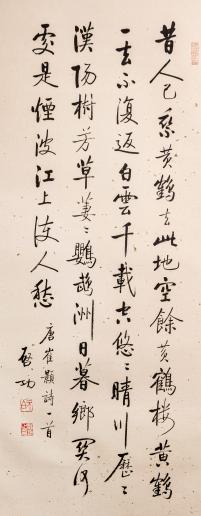 昔人已乘黄鶴去此地空餘黄鶴樓黄鶴
一去不復返白雲千載空悠〻晴川歷〻
漢陽樹芳草萋〻鸚鵡洲日暮鄉關何
處是煙波江上使人愁
唐崔顥詩一首
啓功